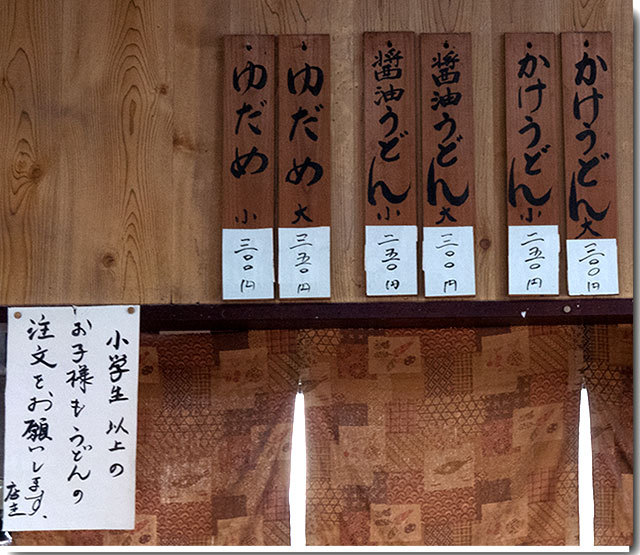 かけうどん大
三〇〇円
かけうどん小
二五〇円
醤油うどん大
三〇〇円
醤油うどん小
二五〇円
ゆだめ大
三五〇円
ゆだめ小
三〇〇円
小学生以上の
お子様もうどんの
注文をお願いします、
店主